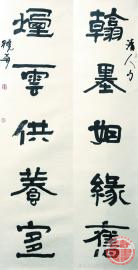 翰墨姻緣舊
清人句
煙雲供養宜